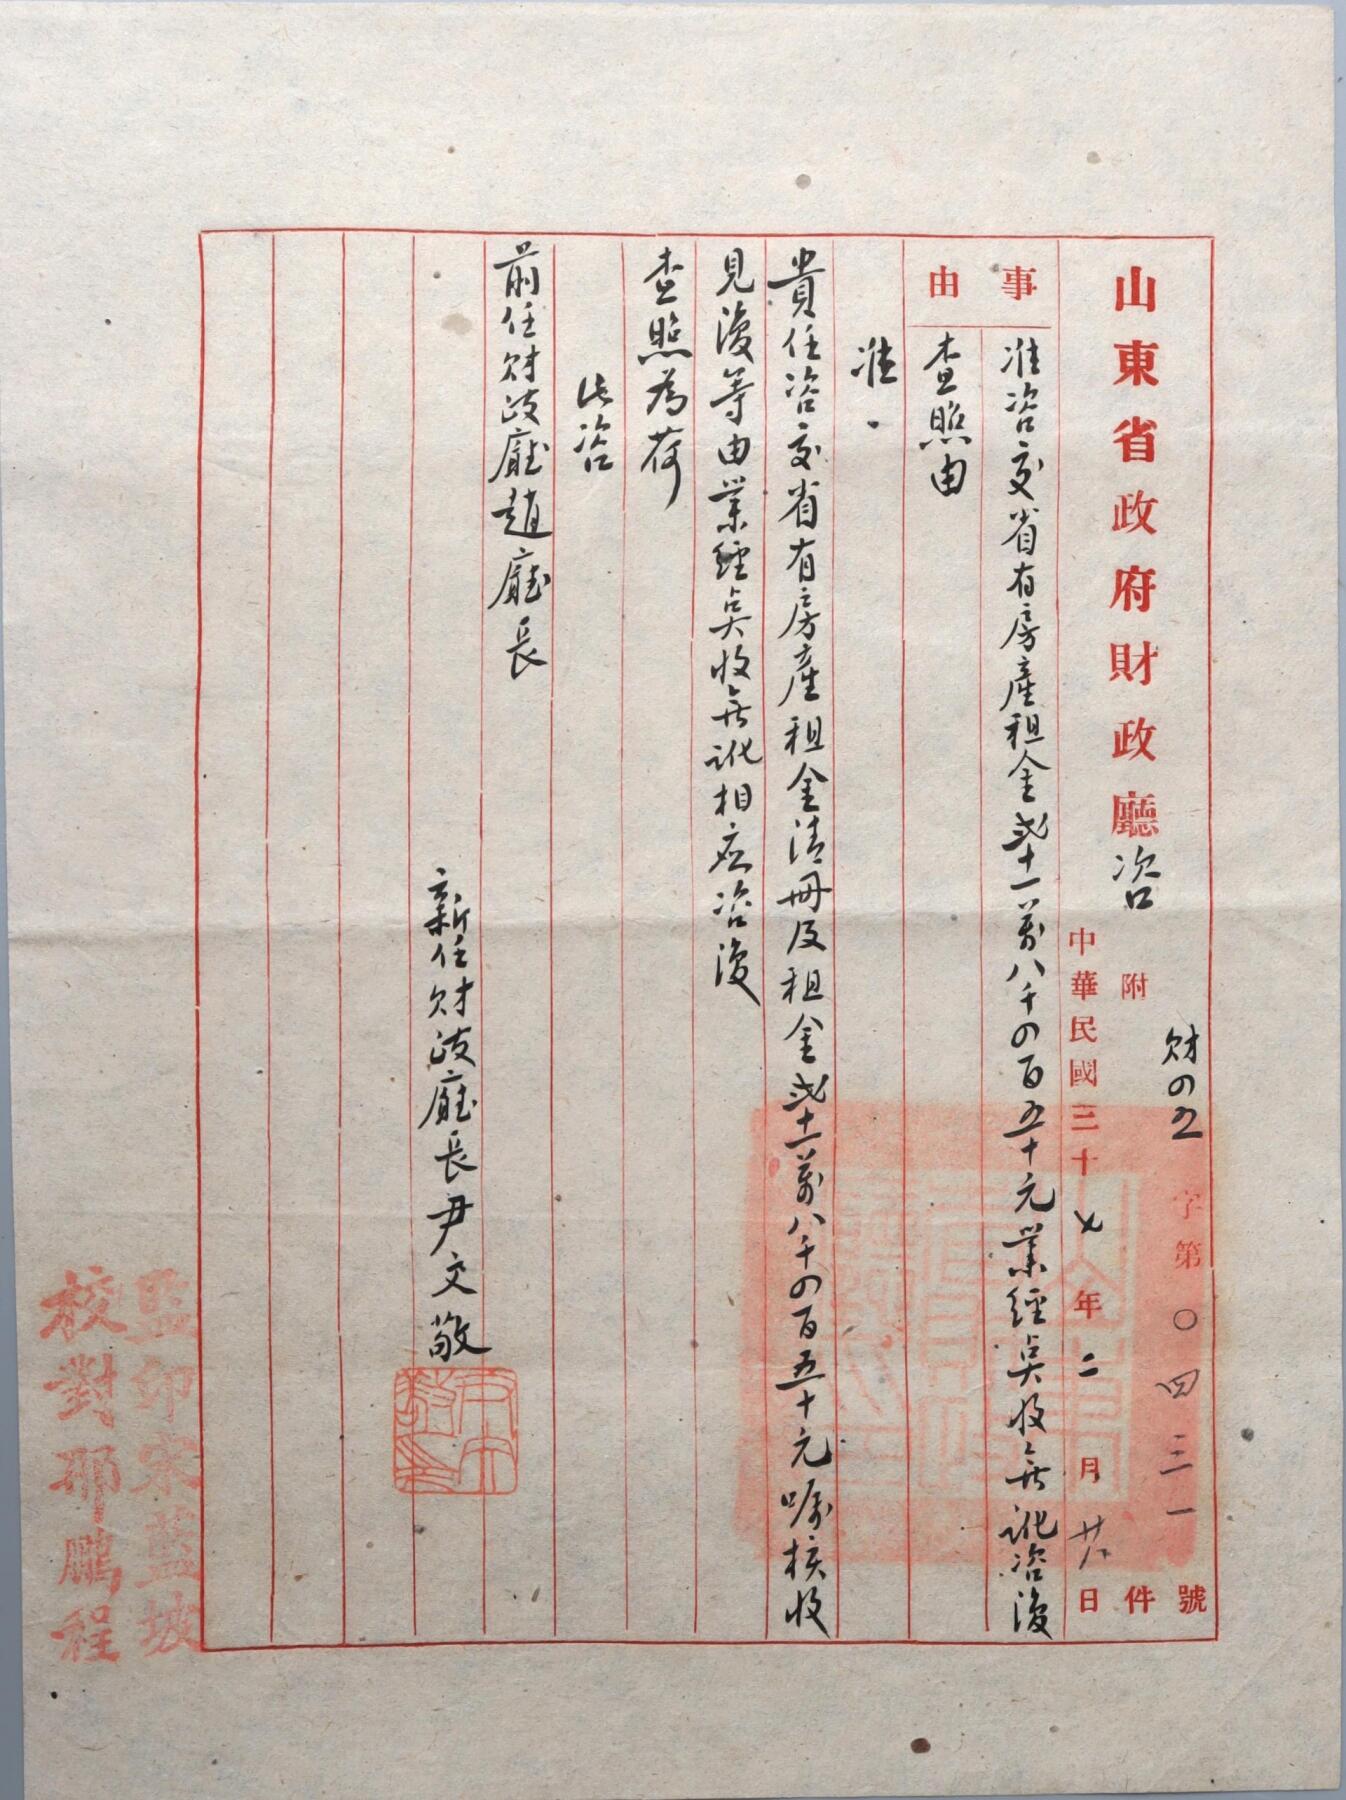 山東省政府財政廳咨
財四五字第〇四三一號
附件
中華民國三十七年二月廿八日
事由
准咨交省有房產租金貳十一萬八千四百五十元業經點收無訛咨復
查照由
准
貴任咨交省有房產租金清冊及租金貳十一萬八千四百五十元囑核收
見復等由業經點收無訛相应咨復
查照為荷
此咨
前任財政廳趙廳長
新任財政廳長尹文敬
尹文敬印
監印宋藍坡
校對邢鵬程